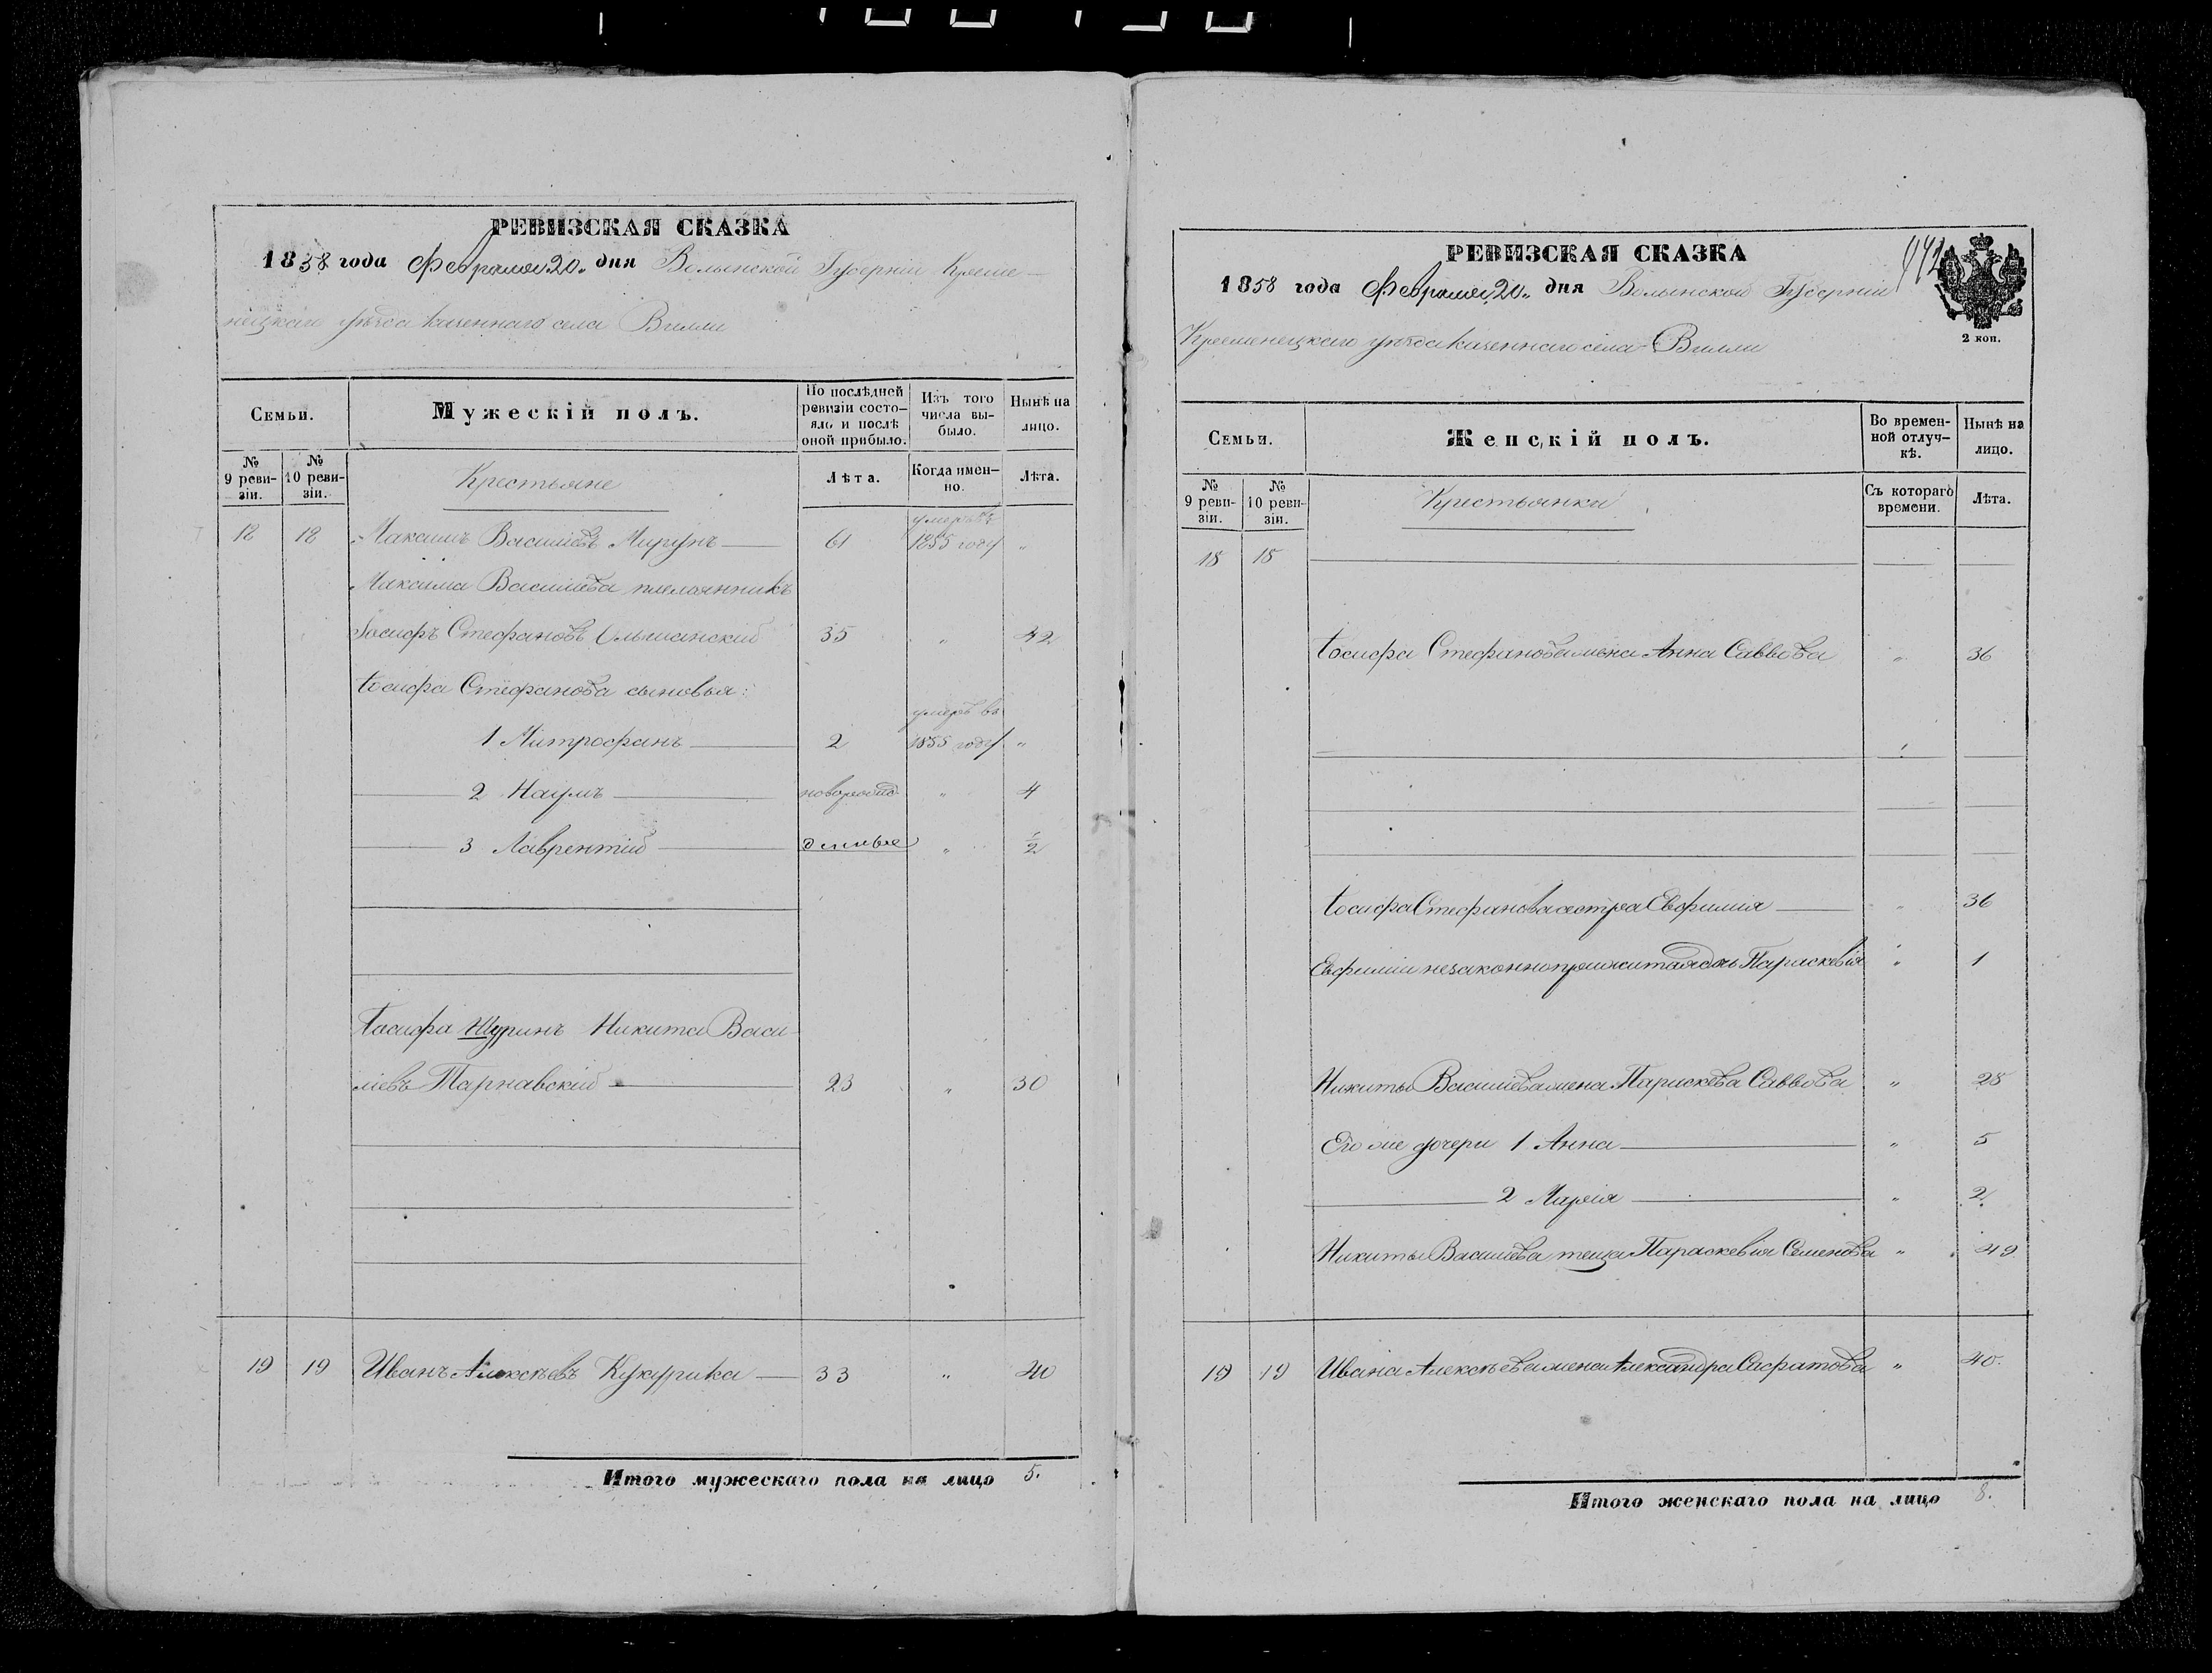 РЕВИЗСКАЯ СКАЗКА
1858 года Февраля 20 „ дня Волынской Губерніи Креме-
нецкаго уѣзда казеннаго села Вилли
Семьи.
Мужескій полъ.
По послѣдней ревизіи состо-яло и послѣ оной прибыло.
Изъ того числа вы-было.
Нынѣ на лицо.
№ 9 реви-зіи.
№ 10 реви-зіи.
Крестьяне
Лѣта.
Когда имен-но.
Лѣта.
умеръ въ
18 18 Максимъ Василіевъ 61 1855 году „
Максима Василіева племянникъ
Іосифъ Стефановъ 35 „ 42
Іосифа Стефанова сыновья:
умеръ въ
1 Митрофанъ 2 1855 году „
2 Наумъ новорожд „ 4
3 Лаврентій „ ½
Іосифа Шуринъ Никита Васи-
ліевъ Тарнавскій 23 „ 30
19 19 Иванъ Алексѣевъ Кукурика 33 „ 40
Итого мужескаго пола на лицо 5.
РЕВИЗСКАЯ СКАЗКА
1858 года Февраля 20 „ дня Волынской Губерніи
Кременецкаго уѣзда казеннаго села Вилли
2 коп.
Семьи.
Женскій полъ.
Во времен-ной отлуч-кѣ.
Нынѣ на лицо.
№ 9 реви-зіи.
№ 10 реви-зіи.
Крестьянки
Съ котораго времени.
Лѣта.
18 18
Іосифа Стефанова жена Анна Саввова „ 36
Іосифа Стефанова сестра Евфимія „ 36
Евфиміи незаконноприжитая дочь Параскевія „ 1
Никиты Василіева жена Параскева Саввова „ 28
Его же дочери 1 Анна „ 5
2 Марія „ 2
Никиты Василіева теща Параскевія Семенова „ 49
19 19 Ивана Алексѣева жена Александра „ 40.
Итого женскаго пола на лицо 8.